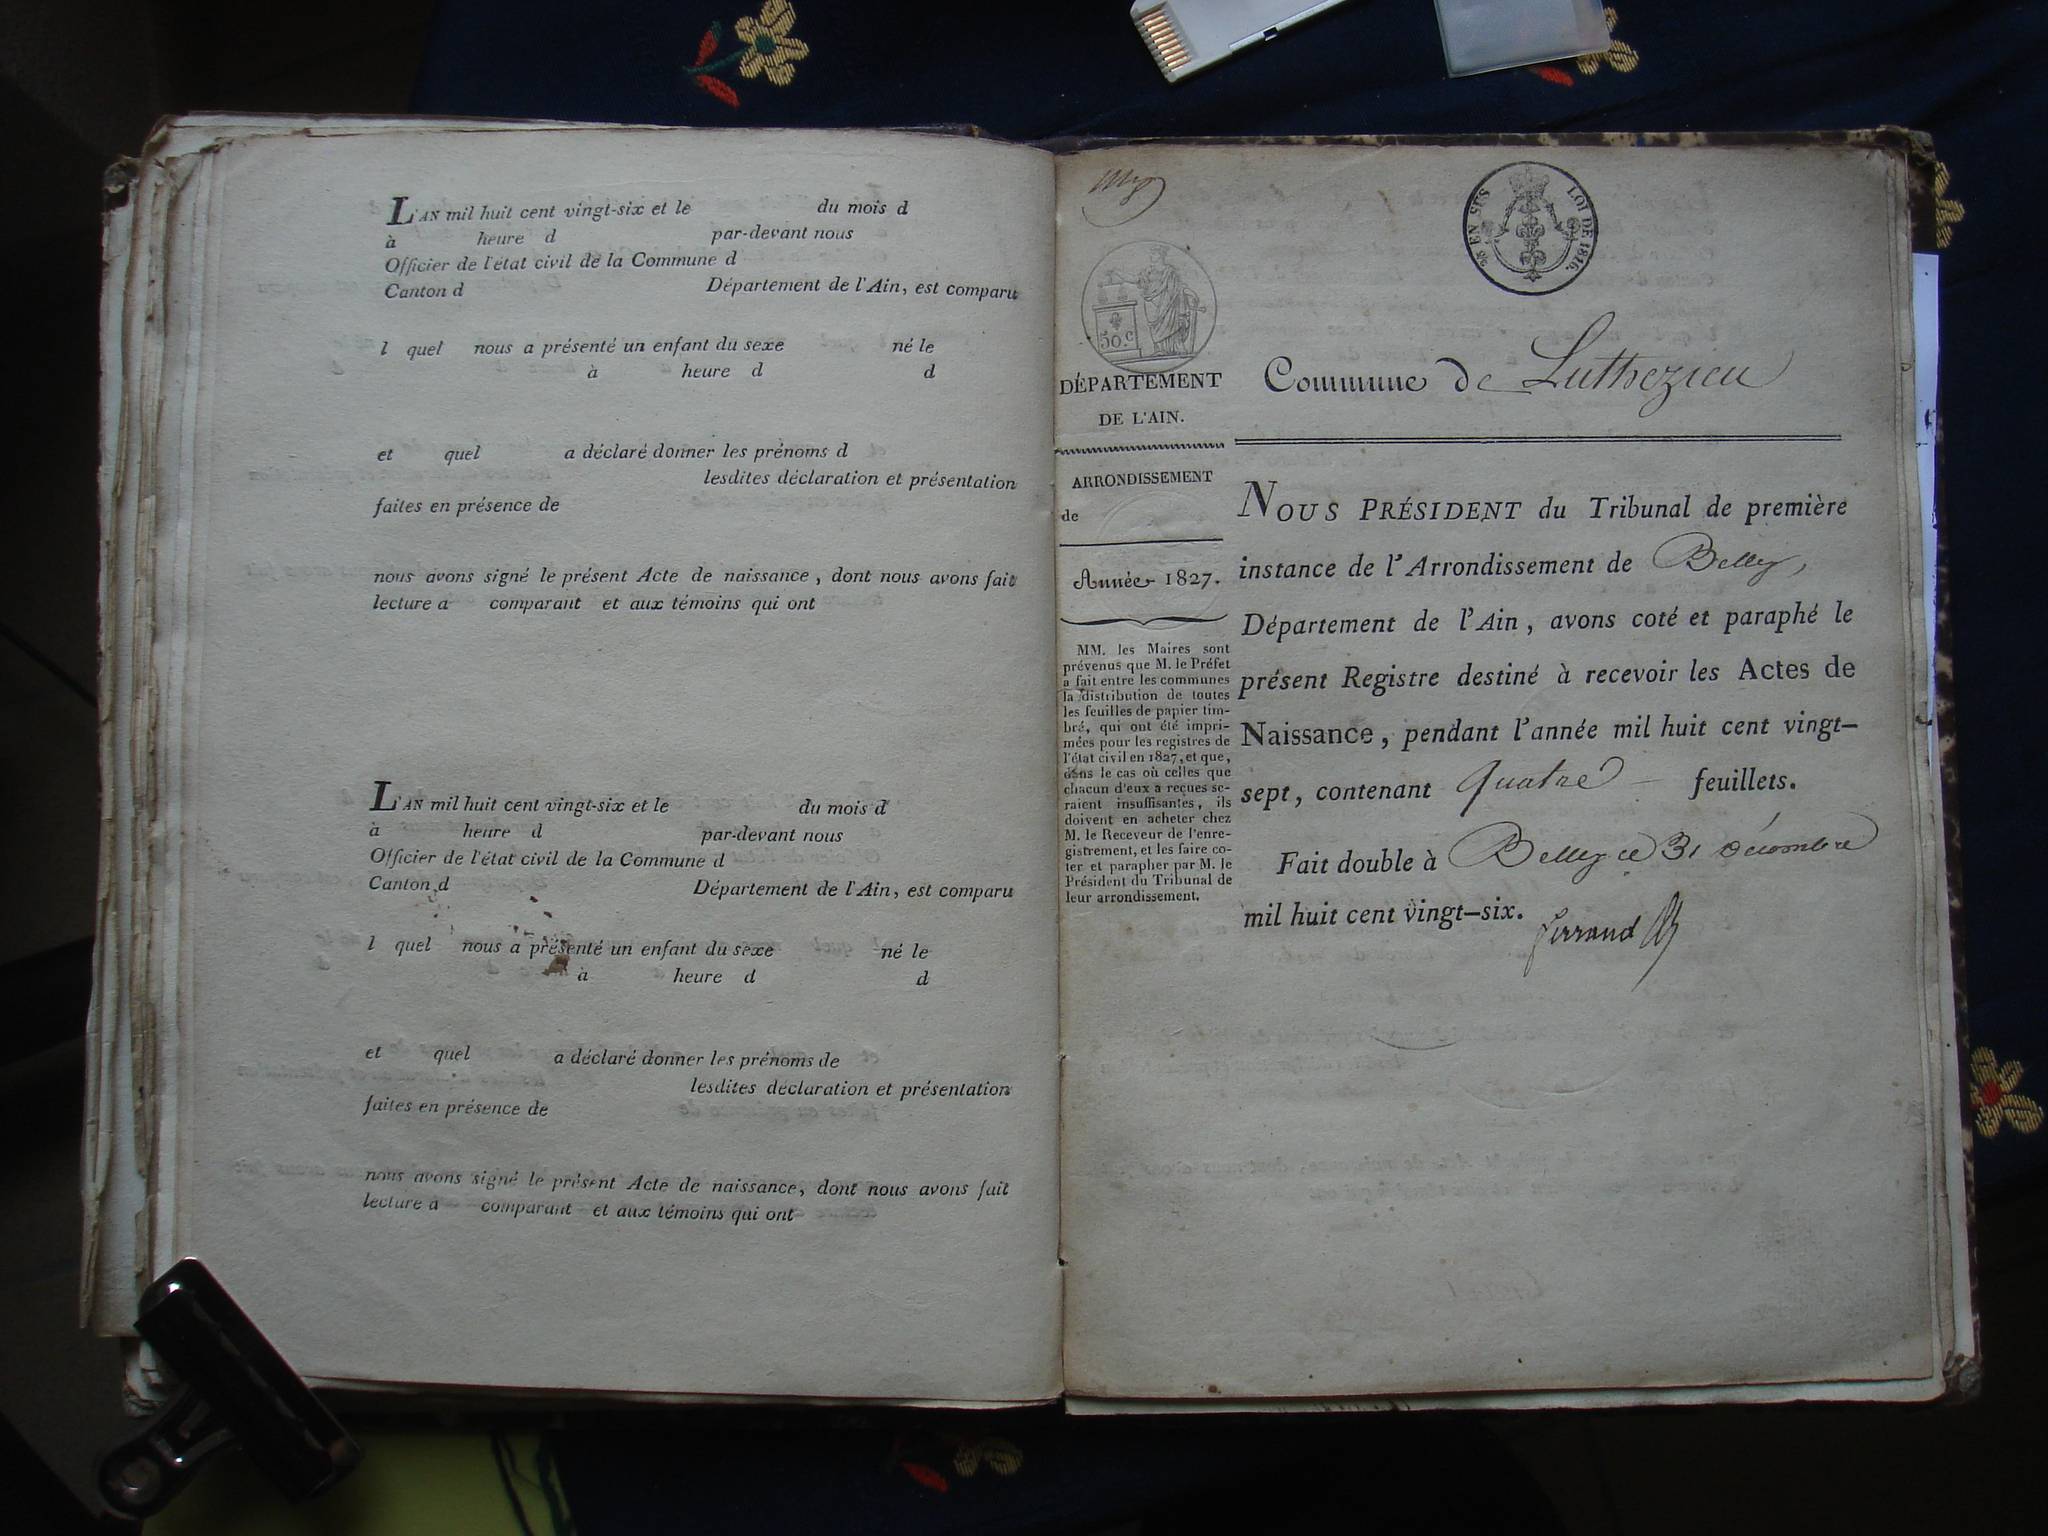 L'AN mil huit cent vingt-six et le du mois d
à heure d par-devant nous
Officier de l'état civil de la Commune d
Canton d Département de l'Ain, est comparu
l quel nous a présenté un enfant du sexe né le
à heure d d
et quel a déclaré donner les prénoms d
lesdites déclaration et présentation
faites en présence de
nous avons signé le présent Acte de naissance, dont nous avons fait
lecture a comparant et aux témoins qui ont
L'AN mil huit cent vingt-six et le du mois d
à heure d par-devant nous
Officier de l'état civil de la Commune d
Canton d Département de l'Ain, est comparu
l quel nous a présenté un enfant du sexe né le
à heure d d
et quel a déclaré donner les prénoms de
lesdites déclaration et présentation
faites en présence de
nous avons signé le présent Acte de naissance, dont nous avons fait
lecture a comparant et aux témoins qui ont
EN SUS
LOI DE 1816.
50.c
DÉPARTEMENT
DE L'AIN.
ARRONDISSEMENT
de
Année 1827.
MM. les Maires sont
prévenus que M. le Préfet
a fait entre les communes
la distribution de toutes
les feuilles de papier tim-
bré, qui ont été impri-
mées pour les registres de
l'état civil en 1827, et que,
dans le cas où celles que
chacun d'eux a reçues se-
raient insuffisantes, ils
doivent en acheter chez
M. le Receveur de l'enre-
gistrement, et les faire co-
ter et parapher par M. le
Président du Tribunal de
leur arrondissement.
Commune de Luthezieu
NOUS PRÉSIDENT du Tribunal de première
instance de l'Arrondissement de Belley,
Département de l'Ain, avons coté et paraphé le
présent Registre destiné à recevoir les Actes de
Naissance, pendant l'année mil huit cent vingt-
sept, contenant Quatre feuillets.
Fait double à Belley ce 31 décembre
mil huit cent vingt-six.
ferrand